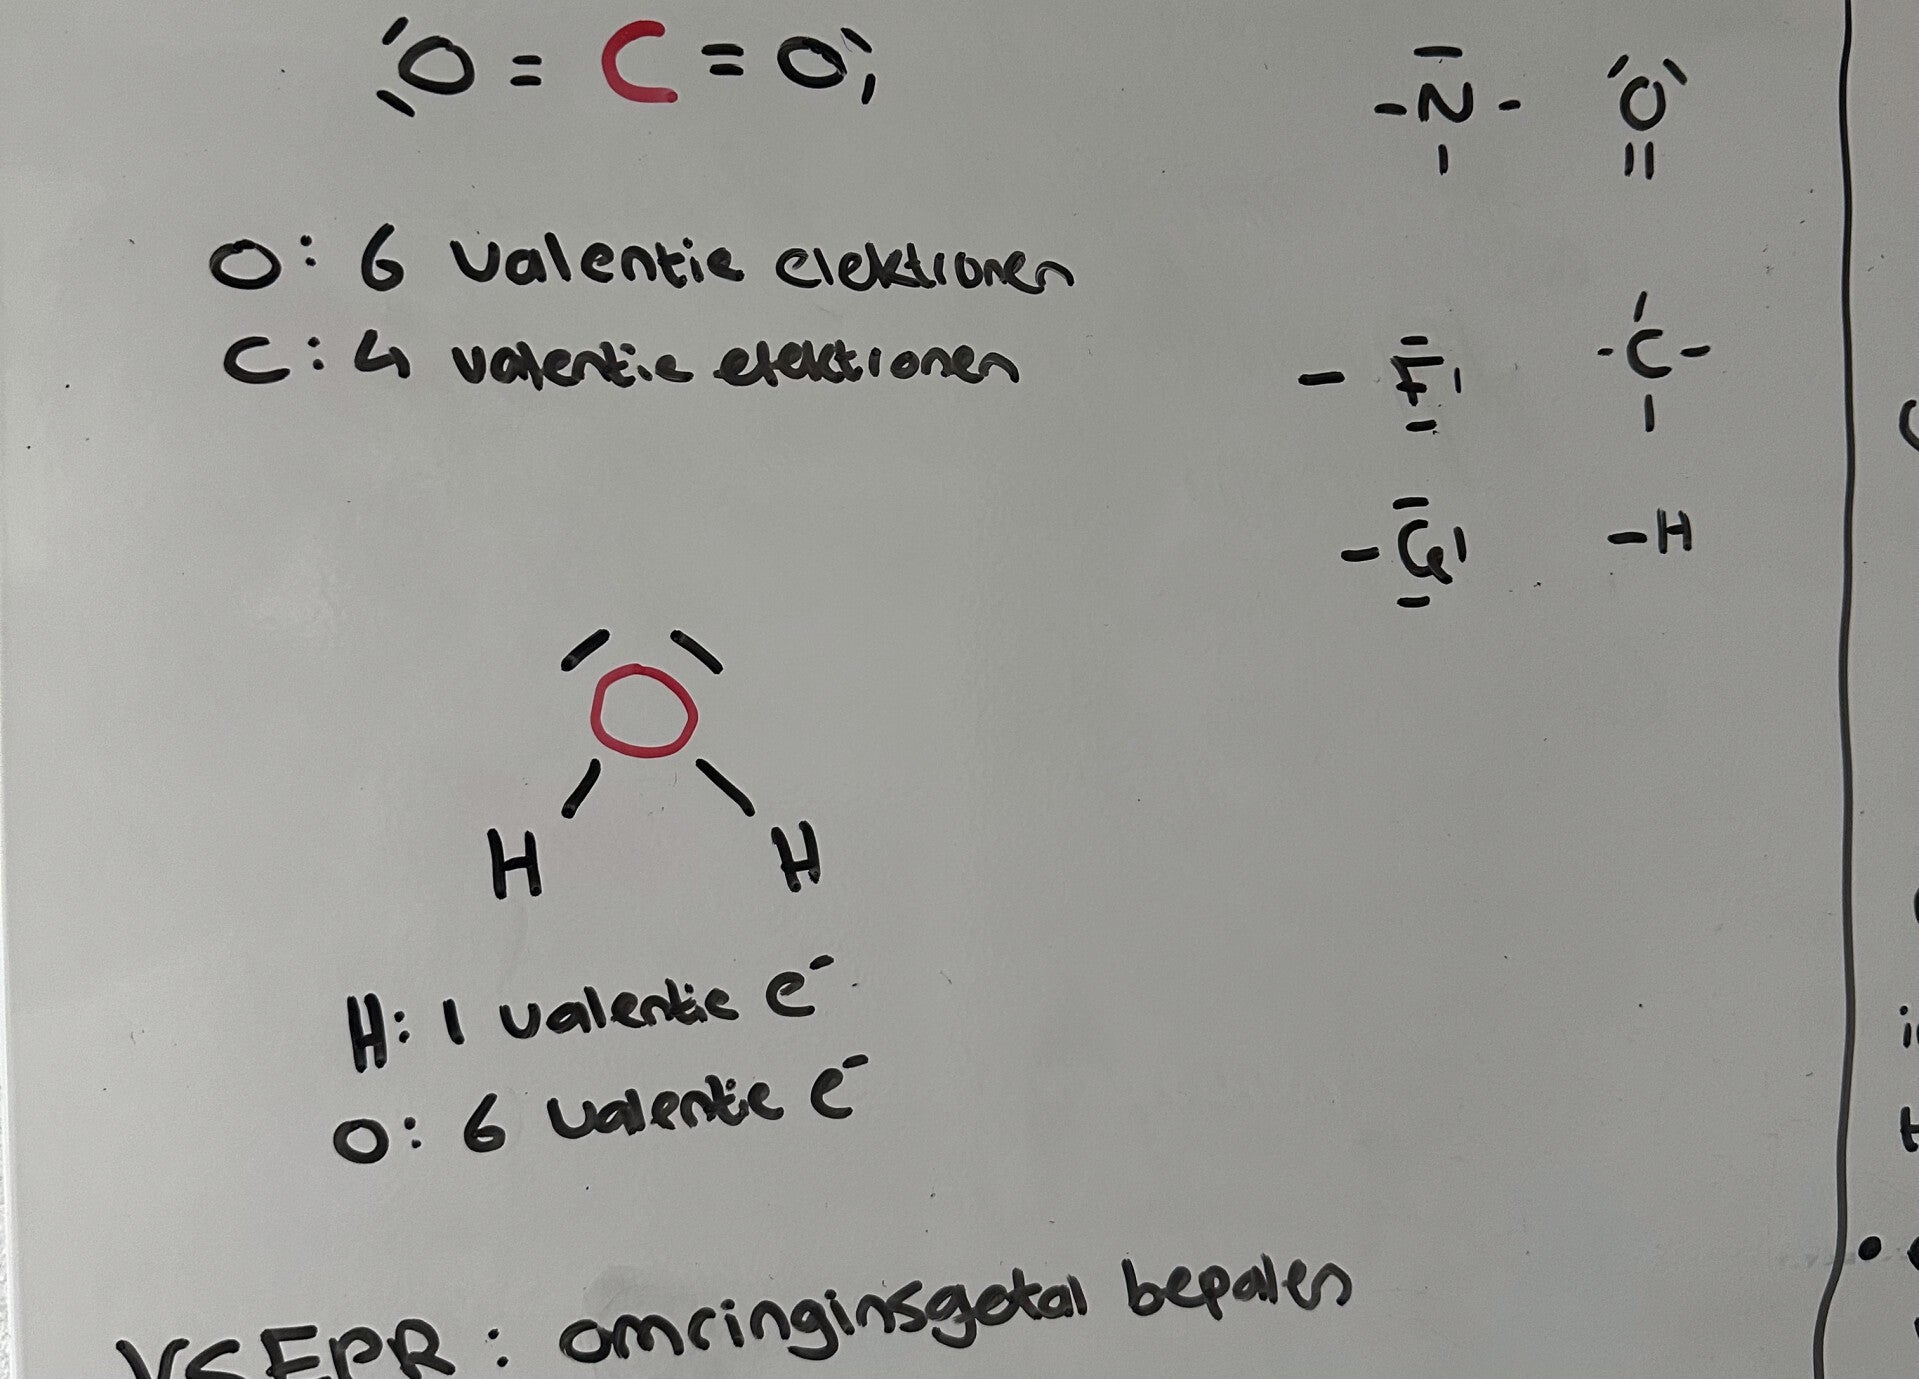 O = C = O
N O
O: 6 valentie elektronen
C: 4 valentie elektronen
F C
Cl H
O
H H
H: 1 valentie e⁻
O: 6 valentie e⁻
VSEPR: omringinsgetal bepalen